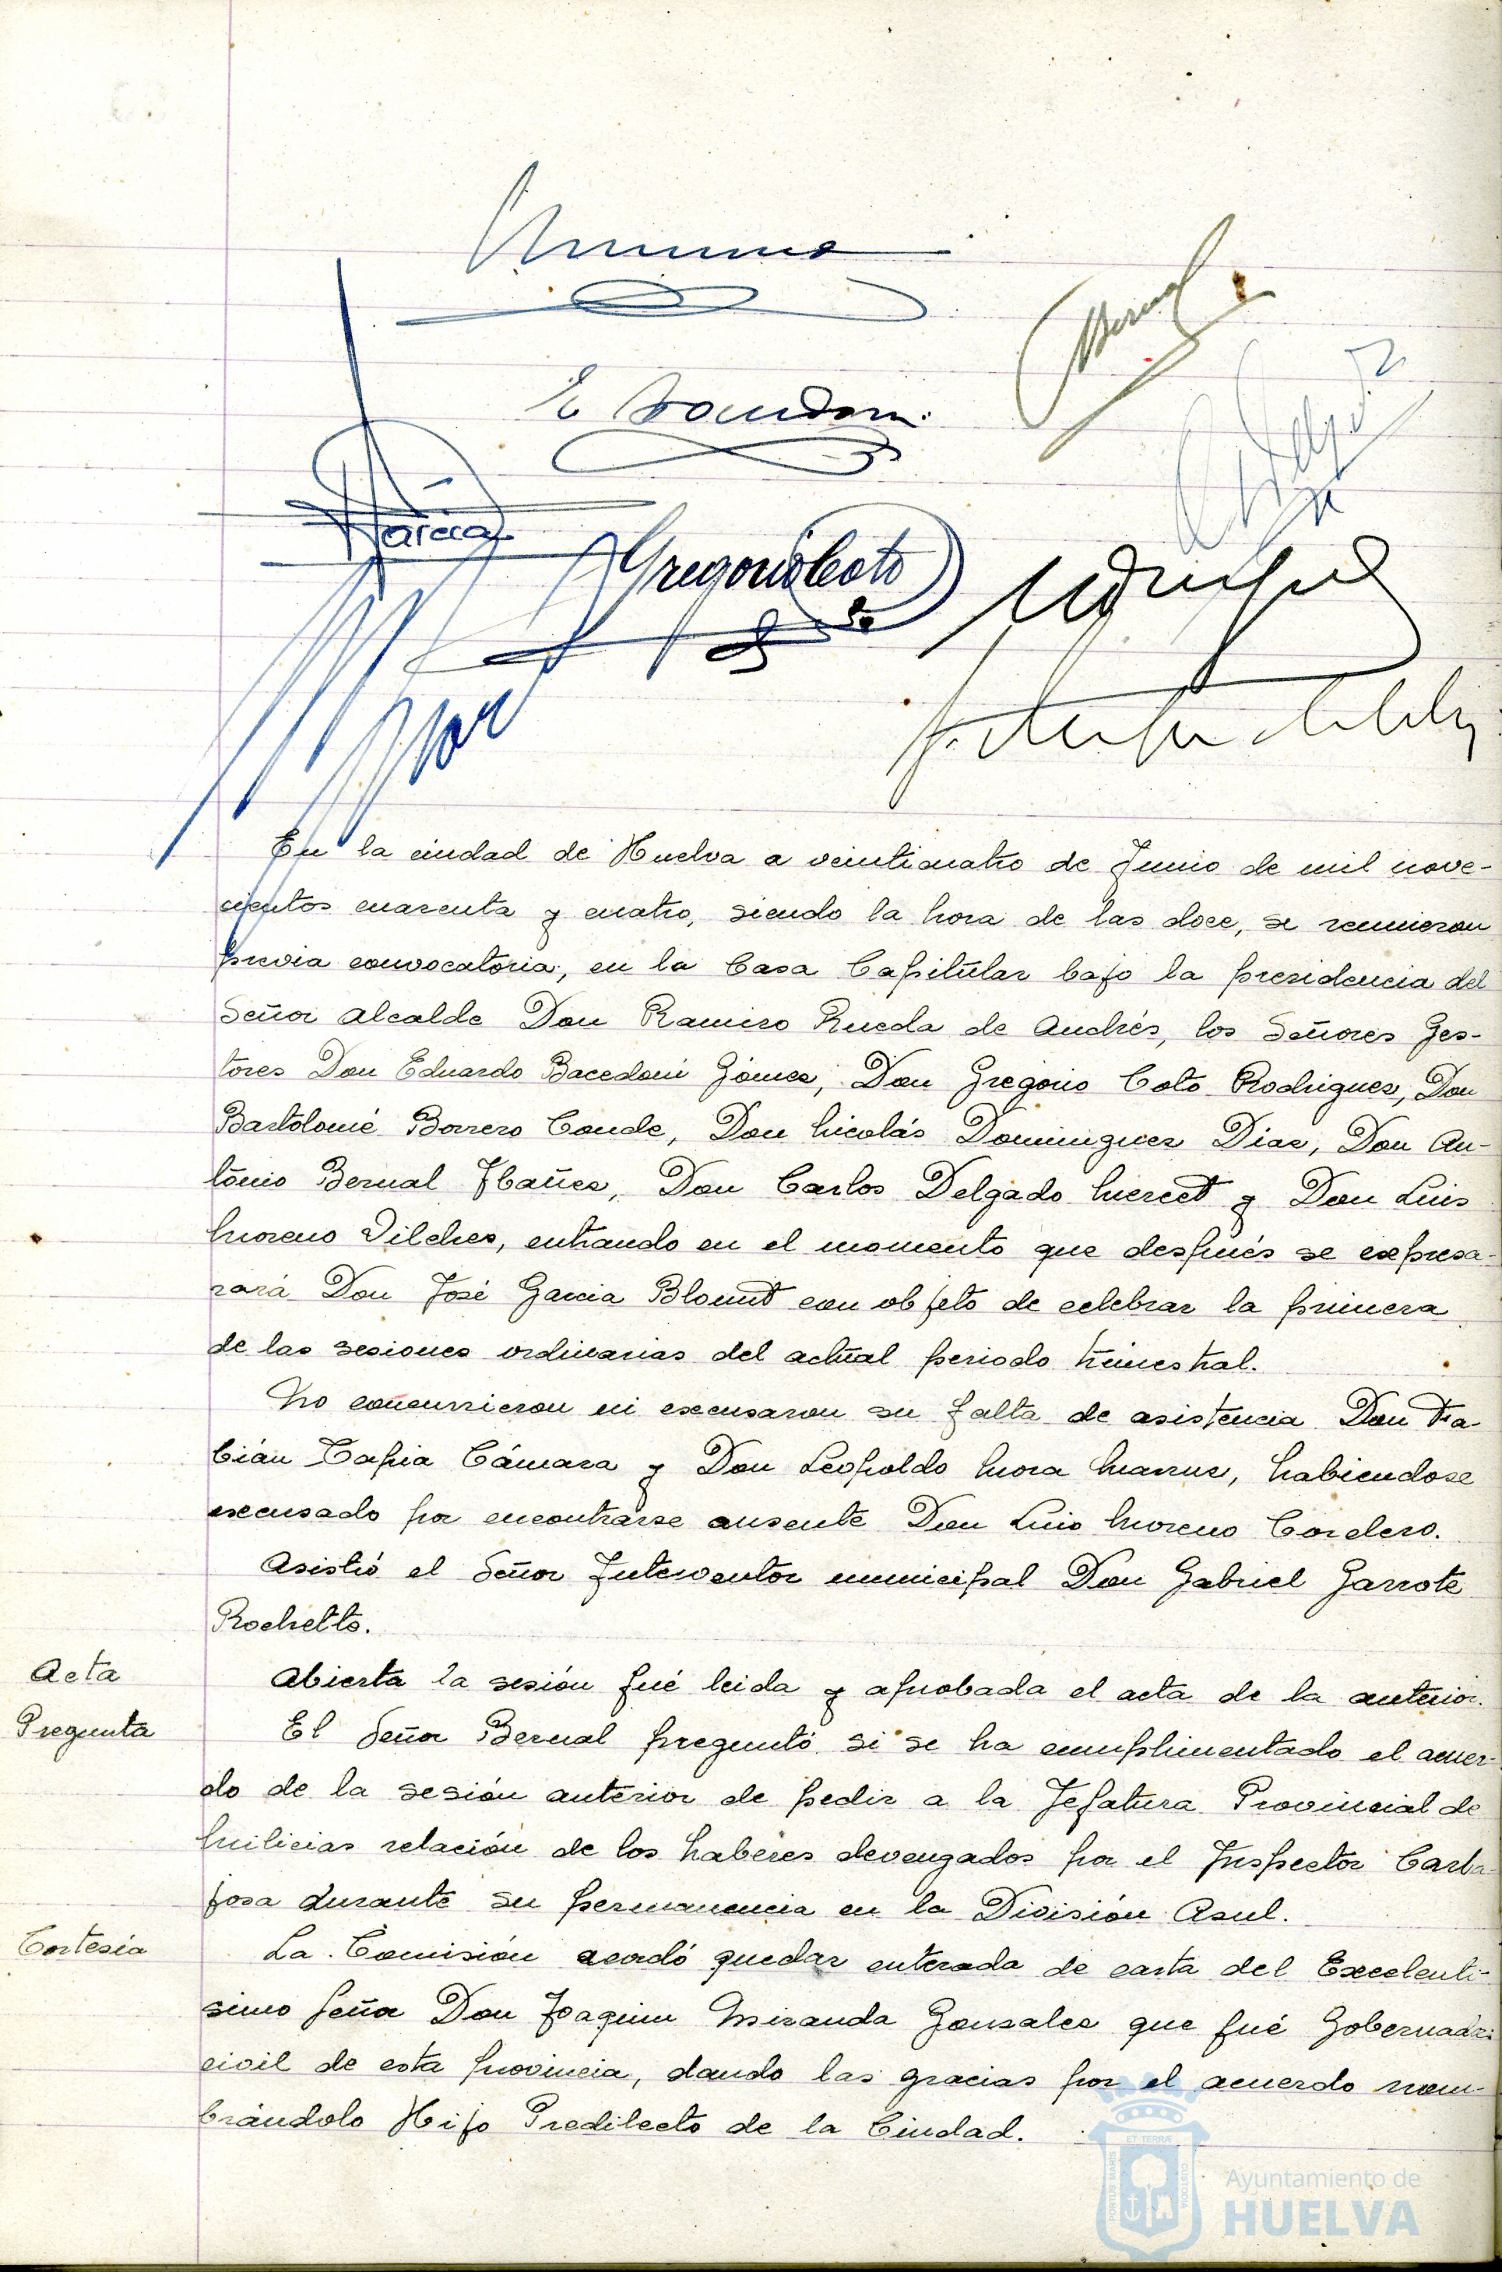 Bernal
E Bacedoni.
García
Gregorio Coto
En la ciudad de Huelva a veinticuatro de Junio de mil nove-
cientos cuarenta y cuatro, siendo la hora de las doce, se reunieron
previa convocatoria, en la Casa Capitular bajo la presidencia del
Señor Alcalde Don Ramiro Rueda de Andrés, los Señores Ges-
tores Don Eduardo Bacedoni Gómez, Don Gregorio Coto Rodriguez, Don
Bartolomé Borrero Conde, Don Nicolás Dominguez Diaz, Don An-
tonio Bernal Ibañez, Don Carlos Delgado Mercet y Don Luis
Moreno Vilches, entrando en el momento que después se expresa-
rará Don José Garcia Blount con objeto de celebrar la primera
de las sesiones ordinarias del actual periodo trimestral.
No concurrieron ni excusaron su falta de asistencia Don Fa-
bián Tapia Cámara y Don Leopoldo Mora, habiendose
excusado por encontrarse ausente Don Luis Moreno Cordero.
Asistió el Señor Interventor municipal Don Gabriel Garrote
Rochetto.
Acta
Abierta la sesión fué leida y aprobada el acta de la anterior.
Pregunta
El Señor Bernal preguntó si se ha cumplimentado el acuer-
do de la sesión anterior de pedir a la Jefatura Provincial de
Milicias relación de los haberes devengados por el Inspector Carba-
josa durante su permanencia en la División Azul.
Cortesía
La Comisión acordó quedar enterada de carta del Excelentí-
simo Señor Don Joaquin Miranda Gonzalez que fué Gobernador
civil de esta provincia, dando las gracias por el acuerdo nom-
brándolo Hijo Predilecto de la Ciudad.
PORTUS MARIS
ET TERRÆ
CUSTODIA
Ayuntamiento de
HUELVA